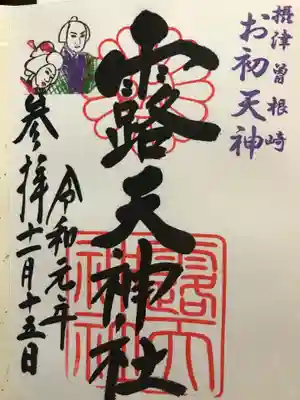 摂津曽根崎
お初天神
露天神社
令和元年
参拝十一月十五日
露天
神社